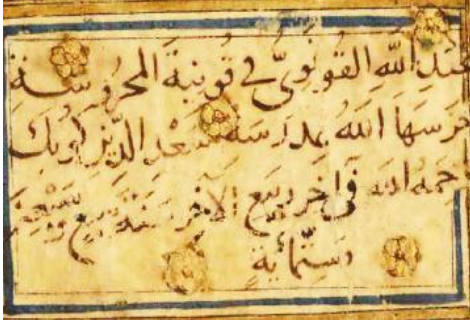 عبد الله القونوي في قونية المحروسة
حرسها الله بمدرسة سعد الدين كوبك
رحمه الله في اخر ربيع الاخر سنة سبع وسبعين
وستمائة